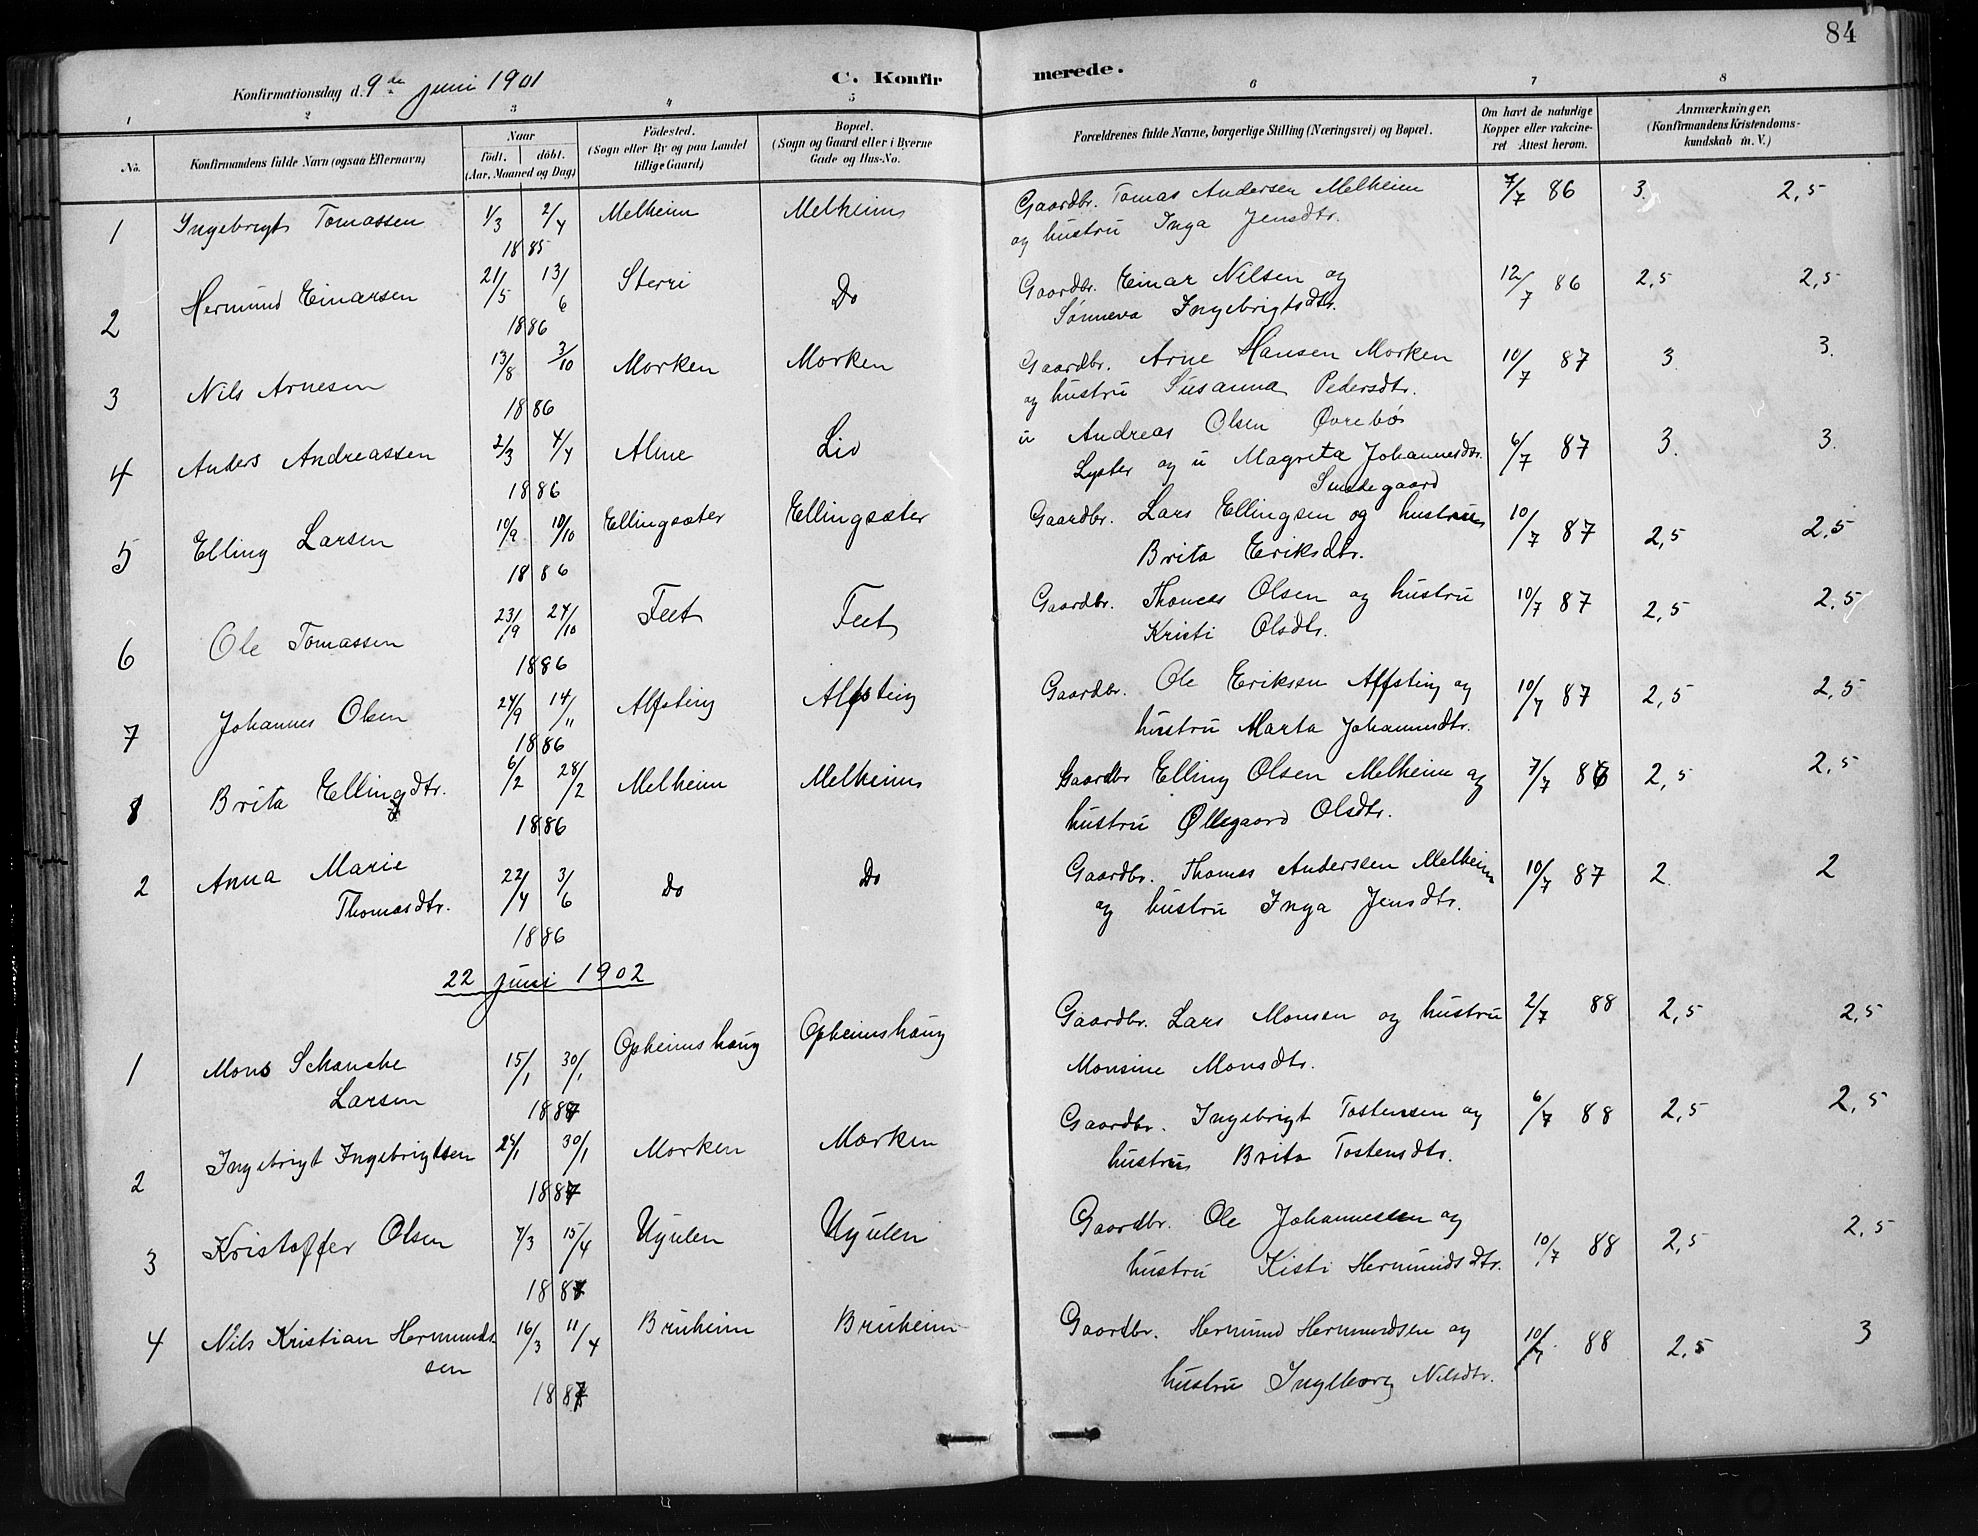 84
Konfirmationsdag d. 9de juni 1901
C. Konfirmerede.
1 2 3 4 5 6 7 8
No.
Konfirmandens fulde Navn (ogsaa Efternavn)
Naar
født. døbt.
(Aar, Maaned og Dag)
Fødested.
(Sogn eller By og paa Landet
tillige Gaard)
Bopæl.
(Sogn og Gaard eller i Byerne
Gade og Hus-No.
Forældrenes fulde Navne, borgerlige Stilling (Næringsvei) og Bopæl.
Om havt de naturlige
Kopper eller vakcine-
ret Attest herom.
Anmærkninger.
(Konfirmandens Kristendoms-
kundskab m. V.)
1 Ingebrigt Tomassen 1/3 2/4 Melheim Melheim Gaardbr. Tomas Andersen Melheim 7/7 86 3. 2,5
1885 og hustru Inga Jensdtr.
2 Hermund Einarsen 21/5 13/6 Sterri Do Gaardbr. Einar Nilsen og 12/7 86 2,5 2,5
1886 Sønneva Ingebrigtsdtr.
3 Nils Arnesen 13/8 3/10 Morken Morken Gaardbr. Arne Hansen Morken 10/7 87 3 3.
1886 og hustru Susanna Pedersdtr.
4 Anders Andreassen 2/3 4/4 Alme Liv u Andreas Olsen Øvrebø 6/7 87 3. 3.
1886 Lyster og u Magreta Johannesdtr.
Smedegaard
5 Elling Larsen 10/9 10/10 Ellingsæter Ellingsæter Gaardbr. Lars Ellingsen og hustru 10/7 87 2,5 2,5
1886 Brita Eriksdtr.
6 Ole Tomassen 23/9 24/10 Feet Feet Gaardbr. Thomas Olsen og hustru 10/7 87 2,5 2,5
1886 Kristi Olsdtr.
7 Johannes Olsen 24/9 14/11 Alfsteig Alfsteig Gaardbr. Ole Eriksen Alfsteig og 10/7 87 2,5 2,5
1886 hustru Marta Johannesdtr.
1 Brita Ellingsdtr. 6/2 28/2 Melheim Melheim Gaardbr Elling Olsen Melheim og 7/7 86 2,5 2,5
1886 hustru Øllegaard Olsdtr.
2 Anna Marie 22/4 3/6 Do Do Gaardbr. Thomas Anderssen Melheim 10/7 87 2 2
Thomasdtr. og hustru Inga Jensdtr.
1886
22 juni 1902
1 Mons Schanche 15/1 30/1 Opheimshaug Opheimshaug Gaardbr. Lars Monsen og hustru 2/7 88 2,5 2,5
Larsen 1887 Monsine Monsdtr.
2 Ingebrigt Ingebrigtsen 25/1 30/1 Morken Morken Gaardbr. Ingebrigt Tostensen og 6/7 88 2,5 2,5
1887 hustru Brita Tostensdtr.
3 Kristoffer Olsen 7/3 15/4 Ugulen Ugulen Gaardbr. Ole Johannessen og 10/7 88 2,5 2,5
1887 hustru Kisti Hermundsdtr.
4 Nils Kristian Hermunds- 16/3 11/4 Bruheim Bruheim Gaardbr. Hermund Hermundsen og 10/7 88 2,5 3
sen 1887 hustru Ingeborg Nilsdtr.